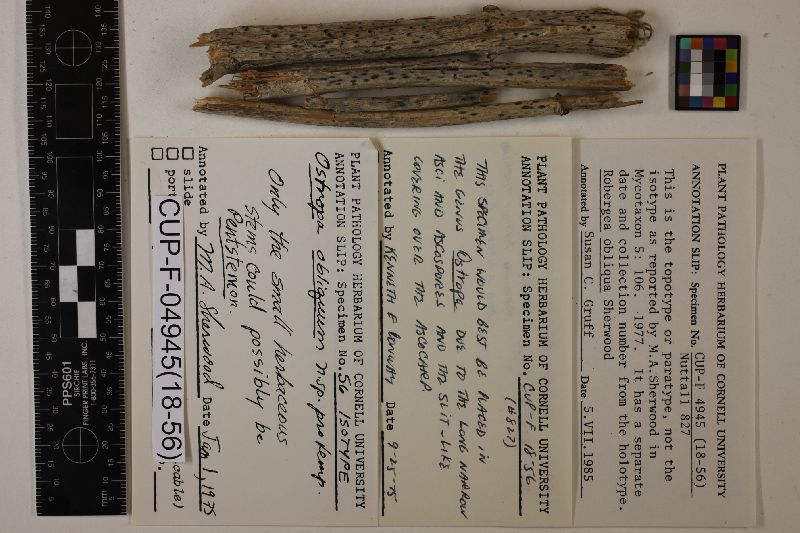 PLANT PATHOLOGY HERBARIUM OF CORNELL UNIVERSITY
ANNOTATION SLIP: Specimen No. CUP-F 4945 (18-56)
Nuttall 827
This is the topotype or paratype, not the
isotype as reported by M.A.Sherwood in
Mycotaxon 5: 106. 1977. It has a separate
date and collection number from the holotype.
Robergea obliqua Sherwood
Annotated by Susan C. Gruff Date 5.VII.1985
PLANT PATHOLOGY HERBARIUM OF CORNELL UNIVERSITY
ANNOTATION SLIP: Specimen No. CUP-F 18-56
(#827)
THIS SPECIMEN WOULD BEST BE PLACED IN
THE GENUS Ostropa DUE TO THE LONG NARROW
ASCI AND ASCOSPORES AND THE SLIT-LIKE
COVERING OVER THE ASCOCARP.
Annotated by KENNETH E Date 9-25-75
PLANT PATHOLOGY HERBARIUM OF CORNELL UNIVERSITY
ANNOTATION SLIP: Specimen No. 56 ISOTYPE
Ostropa obliquum n.sp. pro temp.
Only the small herbaceous
stems could possibly be
Penstemon.
Annotated by M.A. Sherwood Date Jan 1, 1975
slide
port
cable)
CUP-F-04945(18-56)
PPS601
SIRCHIE
FINGER PRINT LABS, INC.
1-800-356-7311